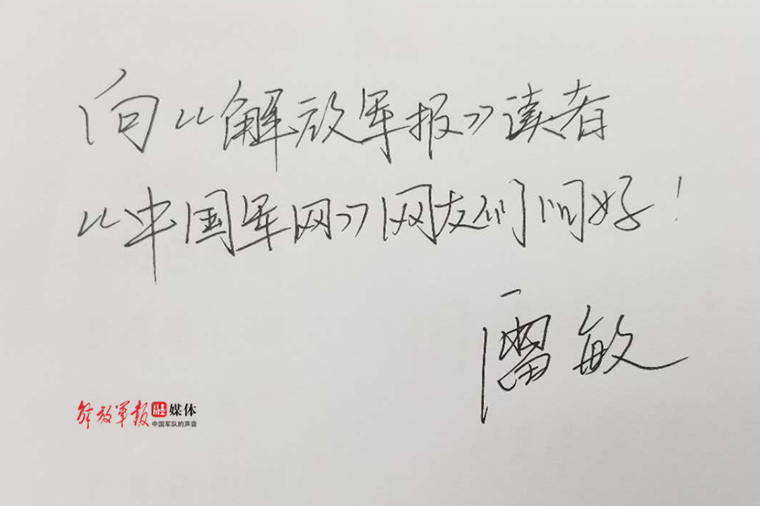 向《解放军报》读者
《中国军网》网友们问好！
雷敏
解放军报融媒体
中国军队的声音